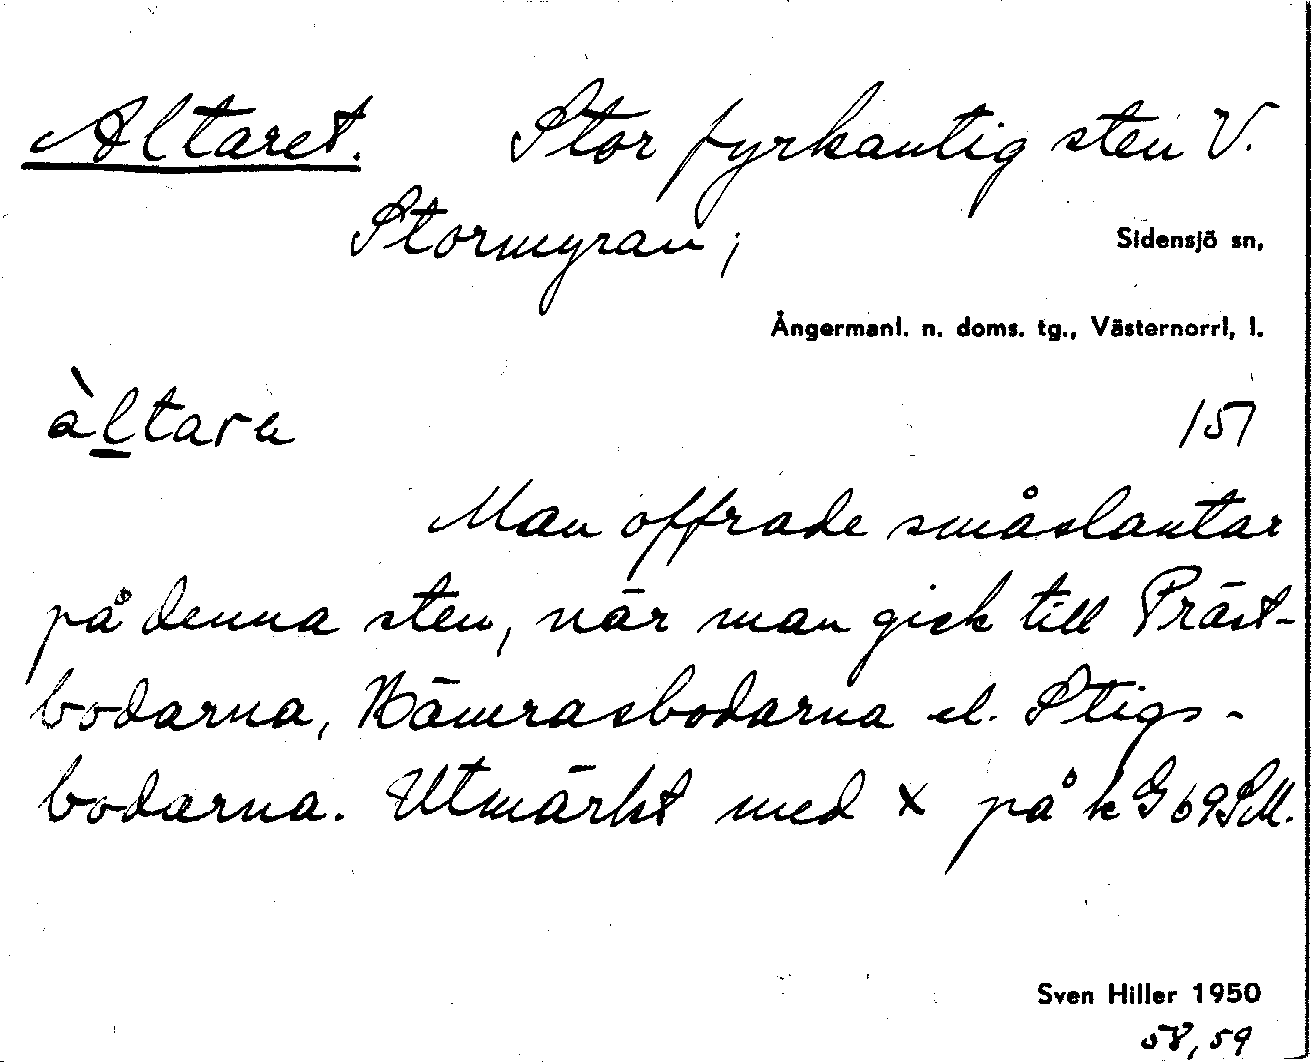 Altaret. Stor fyrkantig sten V.
Stormyran;
Sidensjö sn,
Ångermanl. n. doms. tg., Västernorrl, l.
àltara
151
Man offrade småslantar
på denna sten, när man gick till Präst-
bodarna, Nämrasbodarna el. Stigs-
bodarna. Utmärkt med x på k G 69 SM.
Sven Hiller 1950
58, 59